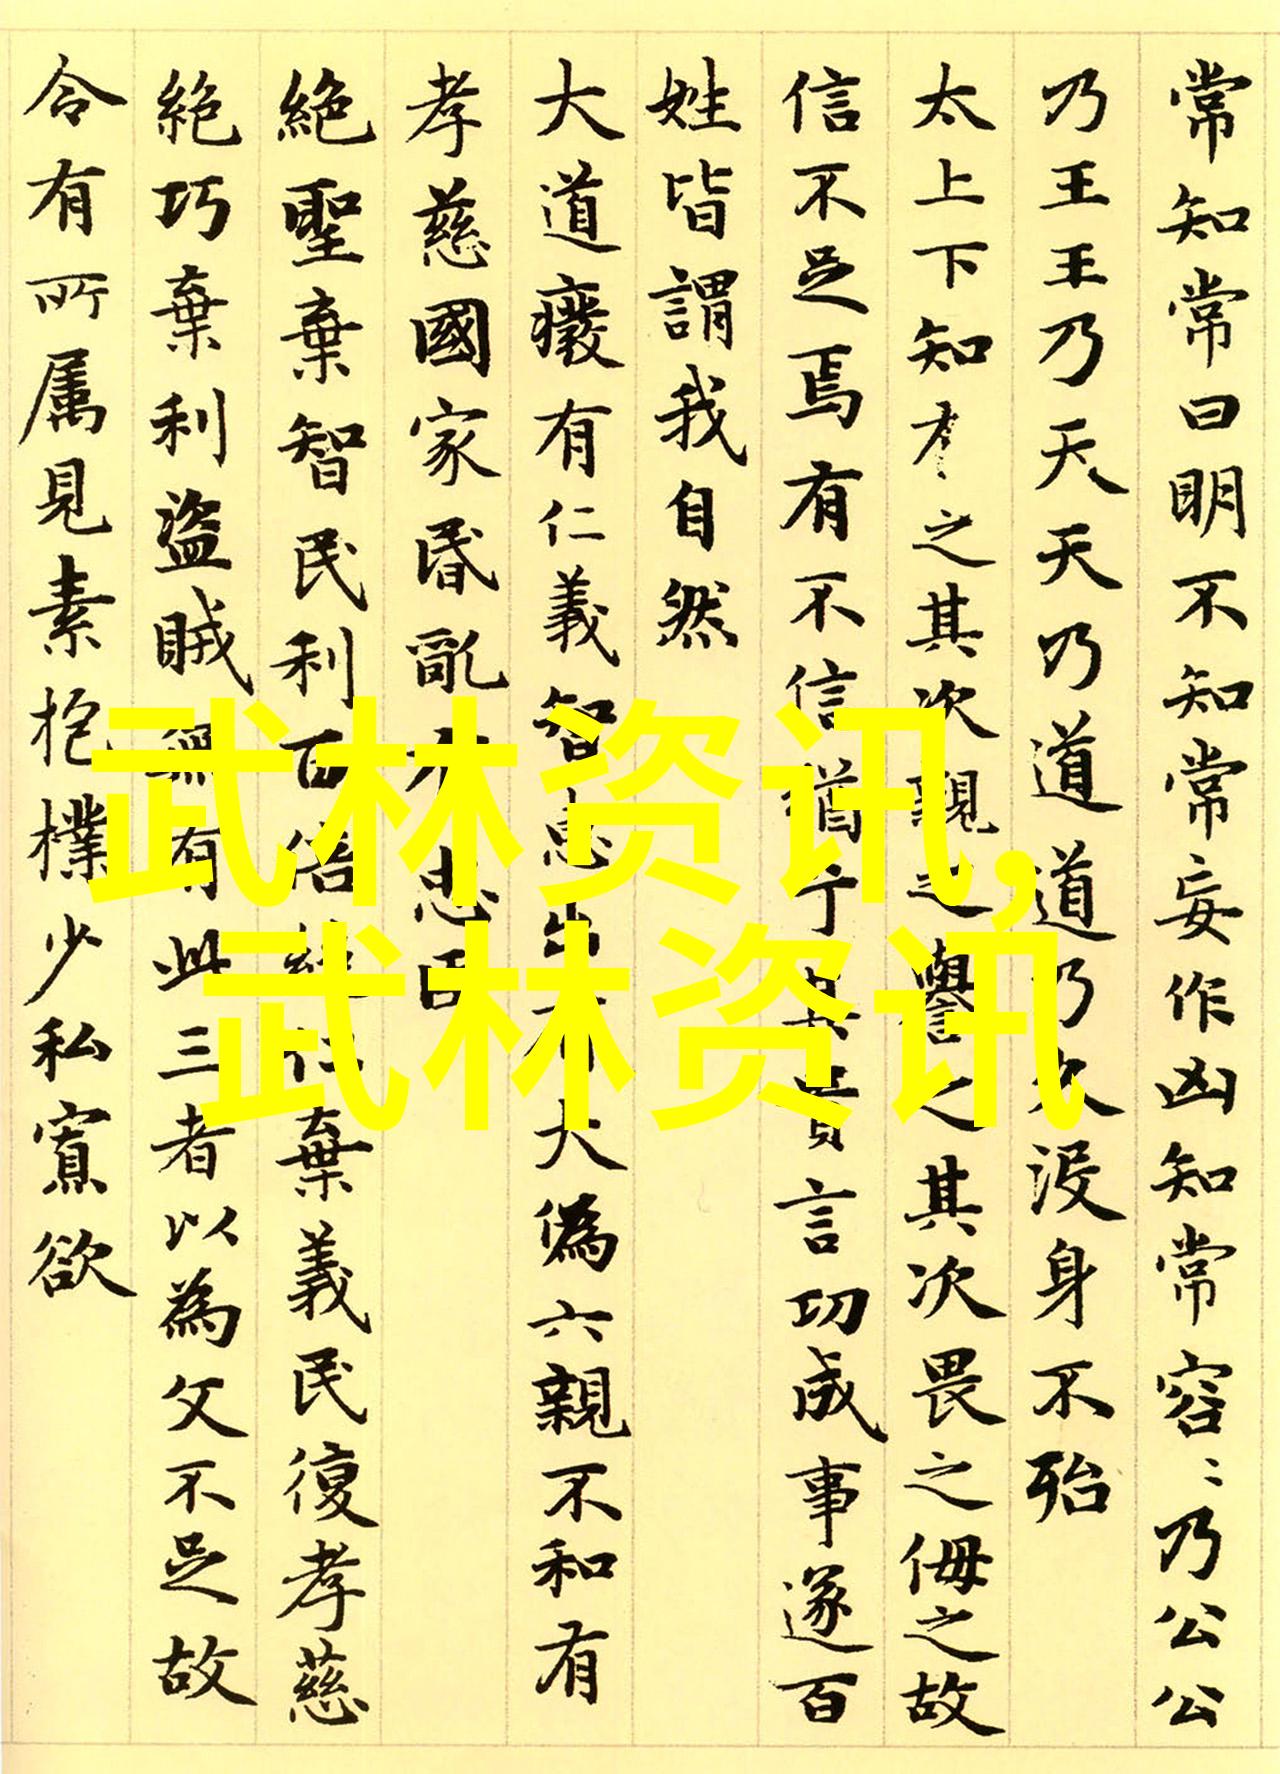 常知知常曰明不知知常妄作凶知常容：乃公公
乃王王乃天天乃道道乃久沒身不殆
太上下知有之其次親之譽之其次畏之侮之故
信不足焉有不信猶其貴言功成事遂百
姓皆謂我自然
大道癈有仁義智惠出有大偽六親不和有
孝慈國家昏亂有忠臣
絕聖棄智民利百倍絕仁棄義民復孝慈
絕巧棄利盜賊無有此三者以為文不足故
令有所属見素抱樸少私寡欲
武林资讯,
武林资讯